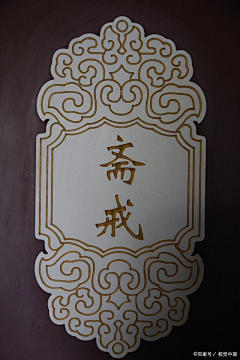 斋戒
©图家号／视觉中国